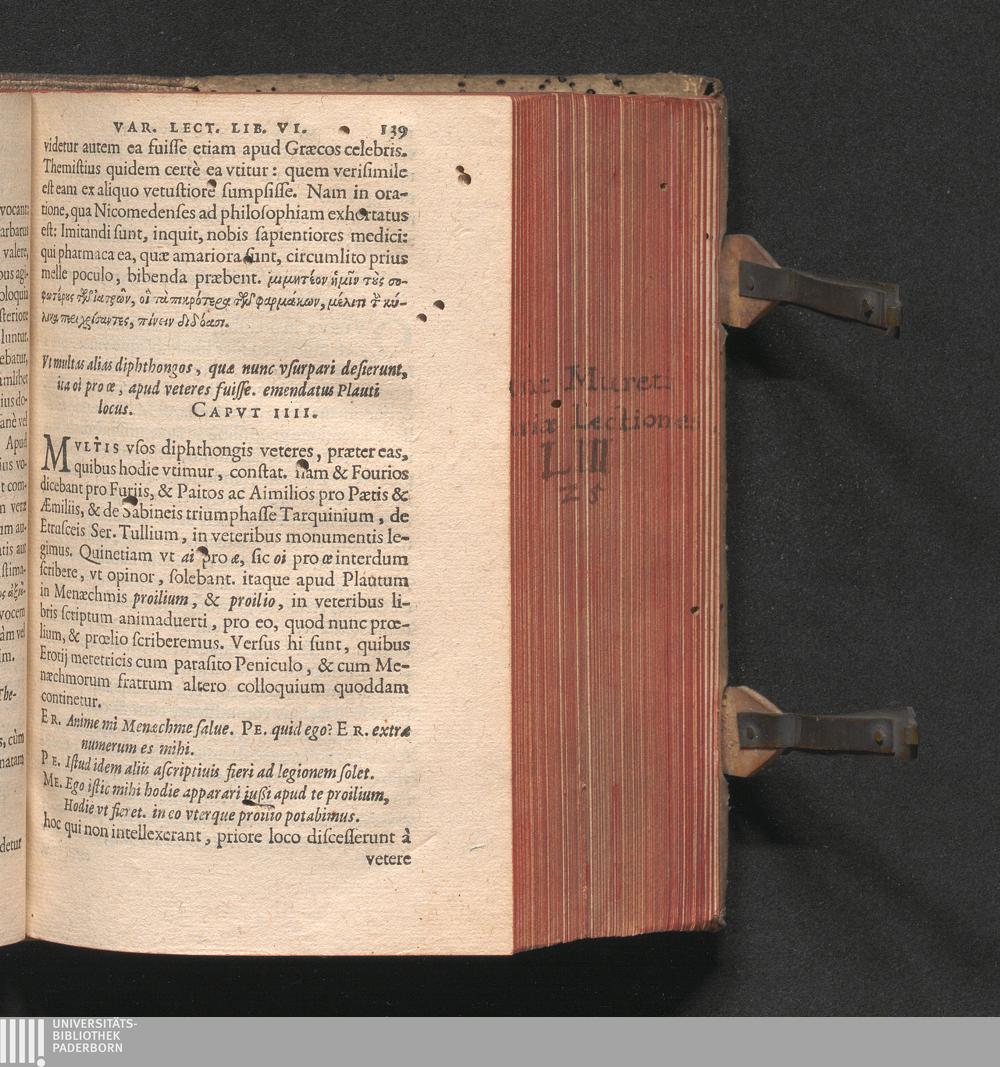 VAR. LECT. LIB. VI. 139
videtur autem ea fuiſſe etiam apud Græcos celebris.
Themiſtius quidem certè ea vtitur: quem veriſimile
eſt eam ex aliquo vetuſtiore ſumpſiſſe. Nam in ora-
tione, qua Nicomedenſes ad philoſophiam exhortatus
eſt: Imitandi ſunt, inquit, nobis ſapientiores medici:
qui pharmaca ea, quæ amariora ſunt, circumlito prius
melle poculo, bibenda præbent. μιμητέον ἡμῖν τοὺς σο-
φωτέρους τῶν ἰατρῶν, οἳ τὰ πικρότερα τῶν φαρμάκων, μέλιτι τὴν κύ-
λικα περιχρίσαντες, πίνειν διδόασι.
Vt multas alias diphthongos, quæ nunc vſurpari deſierunt,
ita oi pro œ, apud veteres fuiſſe. emendatus Plauti
locus. CAPVT IIII.
MVLTIS vſos diphthongis veteres, præter eas,
quibus hodie vtimur, conſtat. nam & Fourios
dicebant pro Furiis, & Paitos ac Aimilios pro Pætis &
Æmiliis, & de Sabineis triumphaſſe Tarquinium, de
Etruſceis Ser. Tullium, in veteribus monumentis le-
gimus. Quinetiam vt ai pro æ, ſic oi pro œ interdum
ſcribere, vt opinor, ſolebant. itaque apud Plautum
in Menæchmis proilium, & proilio, in veteribus li-
bris ſcriptum animaduerti, pro eo, quod nunc prœ-
lium, & prœlio ſcriberemus. Verſus hi ſunt, quibus
Erotij meretricis cum paraſito Peniculo, & cum Me-
næchmorum fratrum altero colloquium quoddam
continetur.
ER. Anime mi Menæchme ſalue. PE. quid ego? ER. extra
numerum es mihi.
PE. Iſtud idem aliis aſcriptiuis fieri ad legionem ſolet.
ME. Ego iſtic mihi hodie apparari iußi apud te proilium,
Hodie vt fieret. in eo vterque proilio potabimus.
hoc qui non intellexerant, priore loco diſceſſerunt à
vetere
Mureti
Lectiones
LIII
25
vocant
arbarus
valere,
oloquia
ſteriore
luntur.
ebatur,
ius do-
Apud
vocem
im.
The-
cùm
natam
detur
UNIVERSITÄTS-
BIBLIOTHEK
PADERBORN